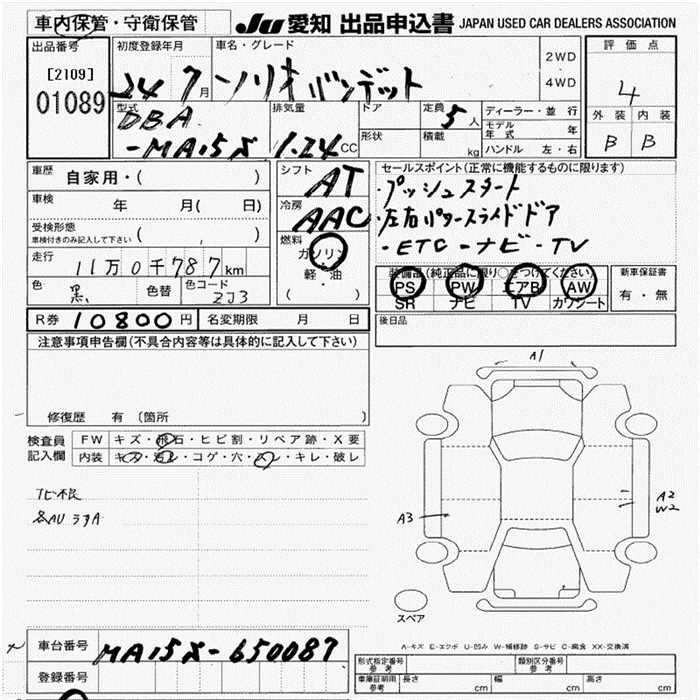 車内保管・守衛保管
JU 愛知 出品申込書 JAPAN USED CAR DEALERS ASSOCIATION
出品番号
[2109]
01089
初度登録年月
24 7月
車名・グレード
ソリオ バンデット
2WD
4WD
評価点
4
外装 内装
B B
型式
DBA
-MA15S
排気量
1.24 CC
ドア
形状
定員
5 人
積載
kg
ディーラー・並行
モデル年式 年
ハンドル 左・右
車歴
自家用・( )
車検
年 月( 日)
受検形態
車検付きのみ記入して下さい ( , )
走行
11万0千787km
色
黒
色替
色コード
ZJ3
シフト
AT
冷房
AAC
燃料
ガソリン
軽・油
( )
セールスポイント(正常に機能するものに限り)
・プッシュスタート
・左右パワースライドドア
・ETC-ナビ・TV
装備品(純正品に限り○をつけてください)
PS PW エアB AW
SR ナビ TV カワシート
新車保証書
有・無
R券 10800円
名変期限 月 日
後日品
注意事項申告欄(不具合内容等は具体的に記入して下さい)
修復歴 有 (箇所
検査員
記入欄
FW キズ・飛石・ヒビ割・リペア跡・X要
内装 キズ・汚レ・コゲ・穴・スレ・キレ・破レ
A1
A2
W2
A3
スペア
A-キズ E-エクボ U-凹み W-補修跡 S-サビ C-腐食 XX-交換済
車台番号
MA15S-650087
登録番号
形式指定番号
参考
類別区分番号
参考
車庫証明用
参考
長さ cm
幅 cm
高さ cm